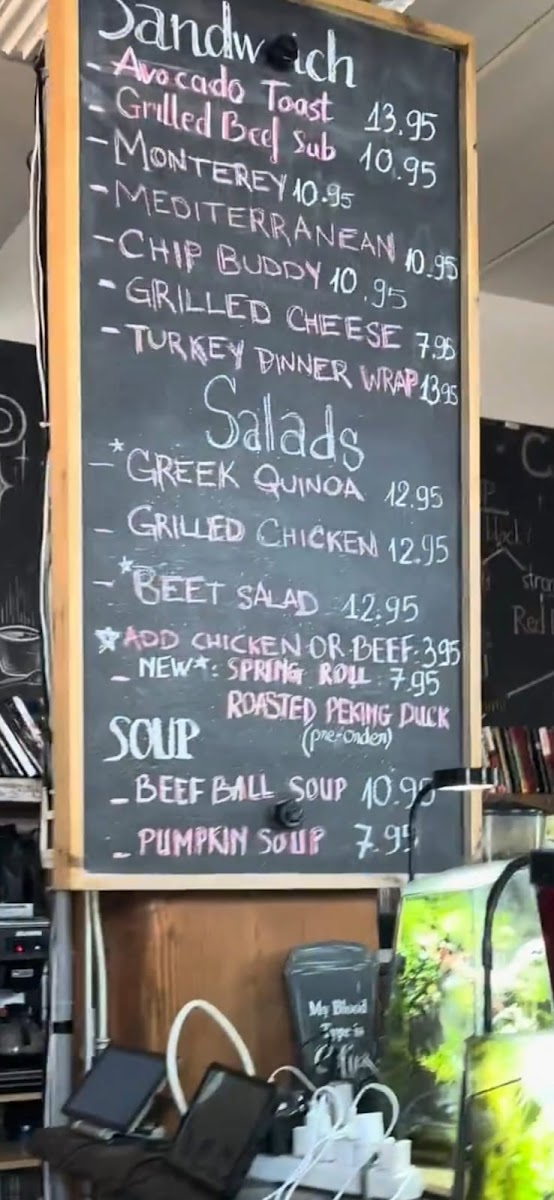 Sandwich
- Avocado Toast 13.95
- Grilled Beef Sub 10.95
- MONTEREY 10.95
- MEDITERRANEAN 10.95
- CHIP BUDDY 10.95
- GRILLED CHEESE 7.95
- TURKEY DINNER WRAP 13.95
Salads
- *GREEK QUINOA 12.95
- GRILLED CHICKEN 12.95
- *BEET SALAD 12.95
☆ADD CHICKEN OR BEEF: 3.95
- NEW*: SPRING ROLL: 7.95
ROASTED PEKING DUCK
(pre-order)
SOUP
- BEEF BALL SOUP 10.95
- PUMPKIN SOUP 7.95
My Blood
Type is